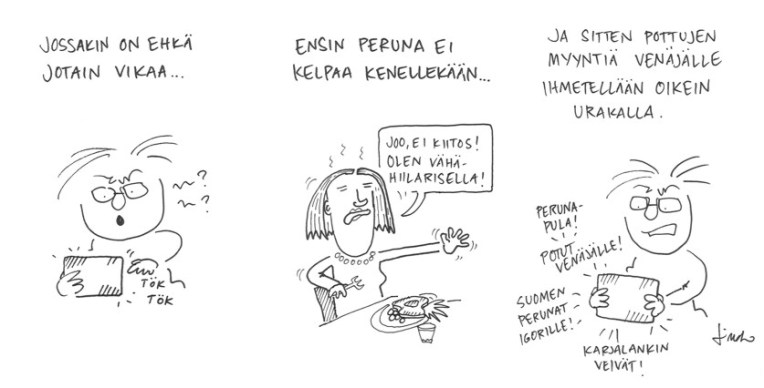 JOSSAKIN ON EHKÄ
JOTAIN VIKAA...
?
?
TÖK
TÖK
ENSIN PERUNA EI
KELPAA KENELLEKÄÄN...
JOO, EI KIITOS!
OLEN VÄHÄ-
HIILARISELLA!
JA SITTEN POTTUJEN
MYYNTIÄ VENÄJÄLLE
IHMETELLÄÄN OIKEIN
URAKALLA.
PERUNA-
PULA!
POTUT
VENÄJÄLLE!
SUOMEN
PERUNAT
IGORILLE!
KARJALANKIN
VEIVÄT!